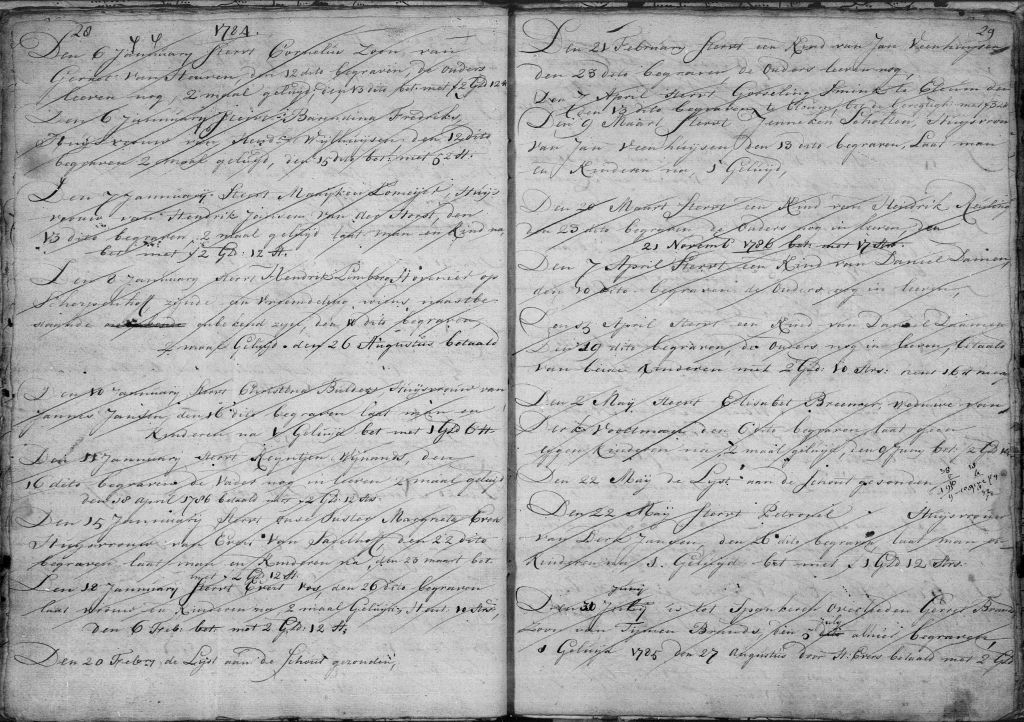 28 1784.
Den 6 Januwary Sterft Cornelis Zoon van
Gerret Van Heuren, den 12 dito begraven, de ouders
leeven nog, 2 maal geluijd, den 13 dito bet: met 2 Gld 12 st
Den 6 Januwary Sterft Barndina Fredriks,
Huijsvrouw van Wilhmisen, den 12 dito
begraven 2 maal geluijd, den 15 dito bet: met 52 st.
Den 7 Januwary Sterft Maayken Lomeijer, Huijs
vrouw van Hendrik Jochem Van der Horst, den
13 dito begraven, 2 maal geluijd laat man en Kind na
bet met 2 Gl: 12 st.
Den 8 January Sterft Hendrik Hovenier op
Scherpenhoff zijnde een Vreemdeling, wiens naastbe
staande onbekend zijn, den 11 dito begraven
2 maal Geluijd. den 26 Augustus betaald
Den 10 January Sterft Christina Bulders Huijsvrouw van
Jannes Jansen, den 16 dito begraven laat man en
Kinderen na 1 Geluijd bet met 1 Gld 6 st
Den 11 Januwary Sterft Reyntjen Wijnands, den
16 dito begraven de Vader nog in leeven 2 maal geluijd
den 18 april 1786 betaald met 2 Gl: 12 st.
Den 15 Januwary Sterft onse Suster Macgreta Evers
Huijsvrouw van Evert Van Sapelhoff den 22 dito
begraven laat man en Kinderen na den 23 maart bet.
met 2 Gld 12 st
Den 18 Januwary Sterft Evert Vos, den 26 dito begraven
laat vrouw en Kinderen na, 2 maal Geluijd,
den 6 Feb: bet. met 2 Gld: 12 st.
Den 20 Febry de Lijst aan de Schout gezonden,
29
Den 21 February Sterft een Kind van Jan Veenhuijsen
den 23 dito begraven de Ouders leeven nog,
Den 7 April Sterft Gosseling Smink te
den 13 dito begraven
Den 9 Maart Sterft Jenneken Scholten, Huijsvrouw
Van Jan Veenhuijsen den 13 dito begraven, Laat man
en Kinderen na, 1 Geluijd,
Den 20 Maart Sterft een Kind van Hendrik
den 23 dito begraven de Ouders nog in leeven, den
21 Novemb 1786 bet: met 17 Strs.
Den 7 April Sterft een Kind van Daniel Daimen,
den 10 dito begraven de Ouders nog in leeven,
Den 15 April Sterft een Kind van Daniel Daimen
Den 19 dito begraven, de Ouders nog in leeven, betaald
Van beide Kinderen met 2 Gld: 10 Strs:
Den 2 Maij Sterft Elisabet Breunner, weduwe van
Derk Voeltman den 6 dito begraven, laat geen
eijgen Kinderen na 2 maal geluijd, den 9 Junij bet: 2 Gld
Den 22 Maij de Lijst aan de Schout gesonden
Den 22 Maij Sterft Petronel Huijsvrouw
Van Derk Jansen den 26 dito begraven, laat man en
Kinderen na 1. Geluijd bet met 1 Gld 12 Strs.
Junij
Den 30 July is tot Spankeren Overleeden Gerret Brands
Zoon van Tijmen Brands, den 5 July alhier begraven,
1 Geluijd 1785 den 27 Augustus door H: Evers betaald met 2 Gld